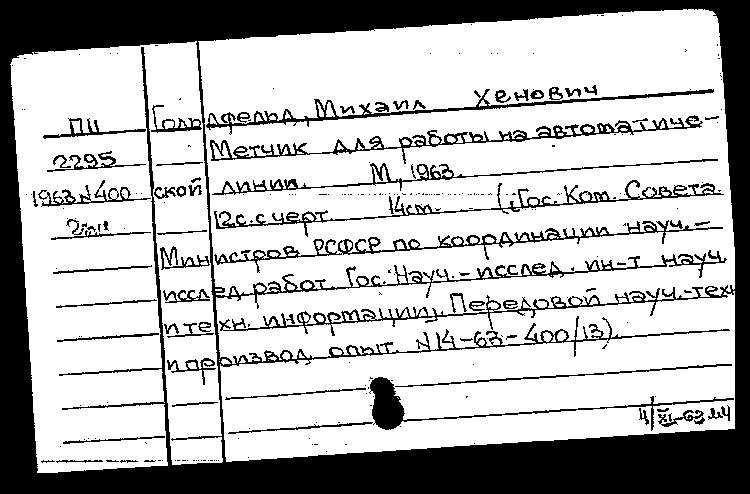 Гольдфельд, Михаил Хенович
ПII
Метчик для работы на автоматиче-
2295
ской линии. М, 1963.
1963 N 400
12с. с черт. 14см. (Гос. Ком. Совета
Министров РСФСР по координации науч.-
исслед. работ. Гос. Науч.-исслед. ин-т науч.
и техн. информации). Передовой науч.-техн
и производ. опыт. N14-63-400/13).
4/XI-63